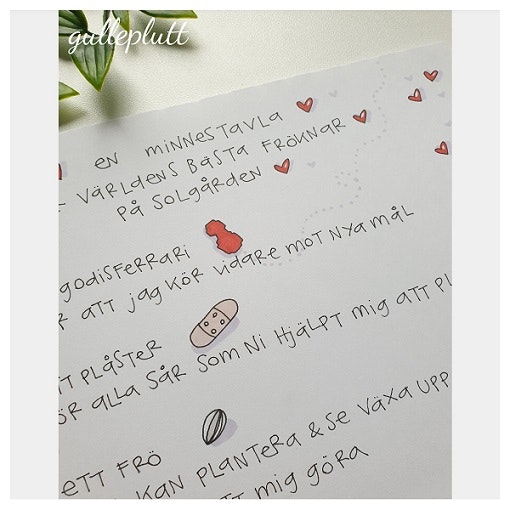 gulleplutt
en minnestavla
världens bästa fröknar
på solgården
godisferrari
att jag kör vidare mot nya mål
plåster
alla sår som ni hjälpt mig att
ett frö
kan plantera & se växa upp
mig göra